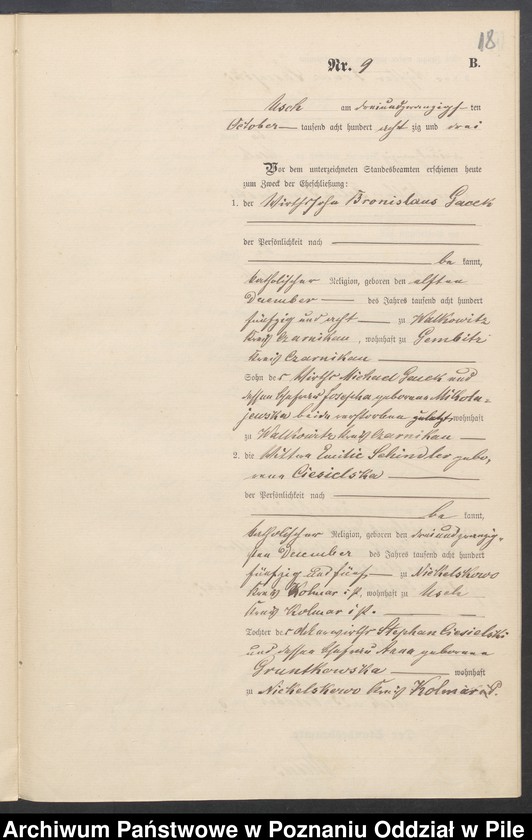 18
Nr. 9 B.
Usch am dreiundzwanzigs ten
October tausend acht hundert acht zig und drei
Vor dem unterzeichneten Standesbeamten erschienen heute
zum Zweck der Eheschließung:
1. der Wirthssohn Bronislaus Gacek
der Persönlichkeit nach
be kannt,
katholischer Religion, geboren den elften
December des Jahres tausend acht hundert
fünfzig und acht zu Walkowitz
Kreis Czarnikau, wohnhaft zu Gembitz
Kreis Czarnikau
Sohn des Wirths Michael Gacek und
dessen Ehefrau Josepha geborenen Mikola=
jewska beide verstorben zuletzt wohnhaft
zu Walkowitz Kreis Czarnikau
2. die Wittwe Emilie Schindler gebo,
rene Ciesielska
der Persönlichkeit nach
be kannt,
katholischer Religion, geboren den dreiundzwanzig,
sten December des Jahres tausend acht hundert
fünfzig und fünf zu Nickelskowo
Kreis Kolmar i/P., wohnhaft zu Usch
Kreis Kolmar i/P.
Tochter des Ackerwirths Stephan Ciesielski
und dessen Ehefrau Anna geborenen
Gruntkowska wohnhaft
zu Nickelskowo Kreis Kolmar i/P.
Archiwum Państwowe w Poznaniu Oddział w Pile